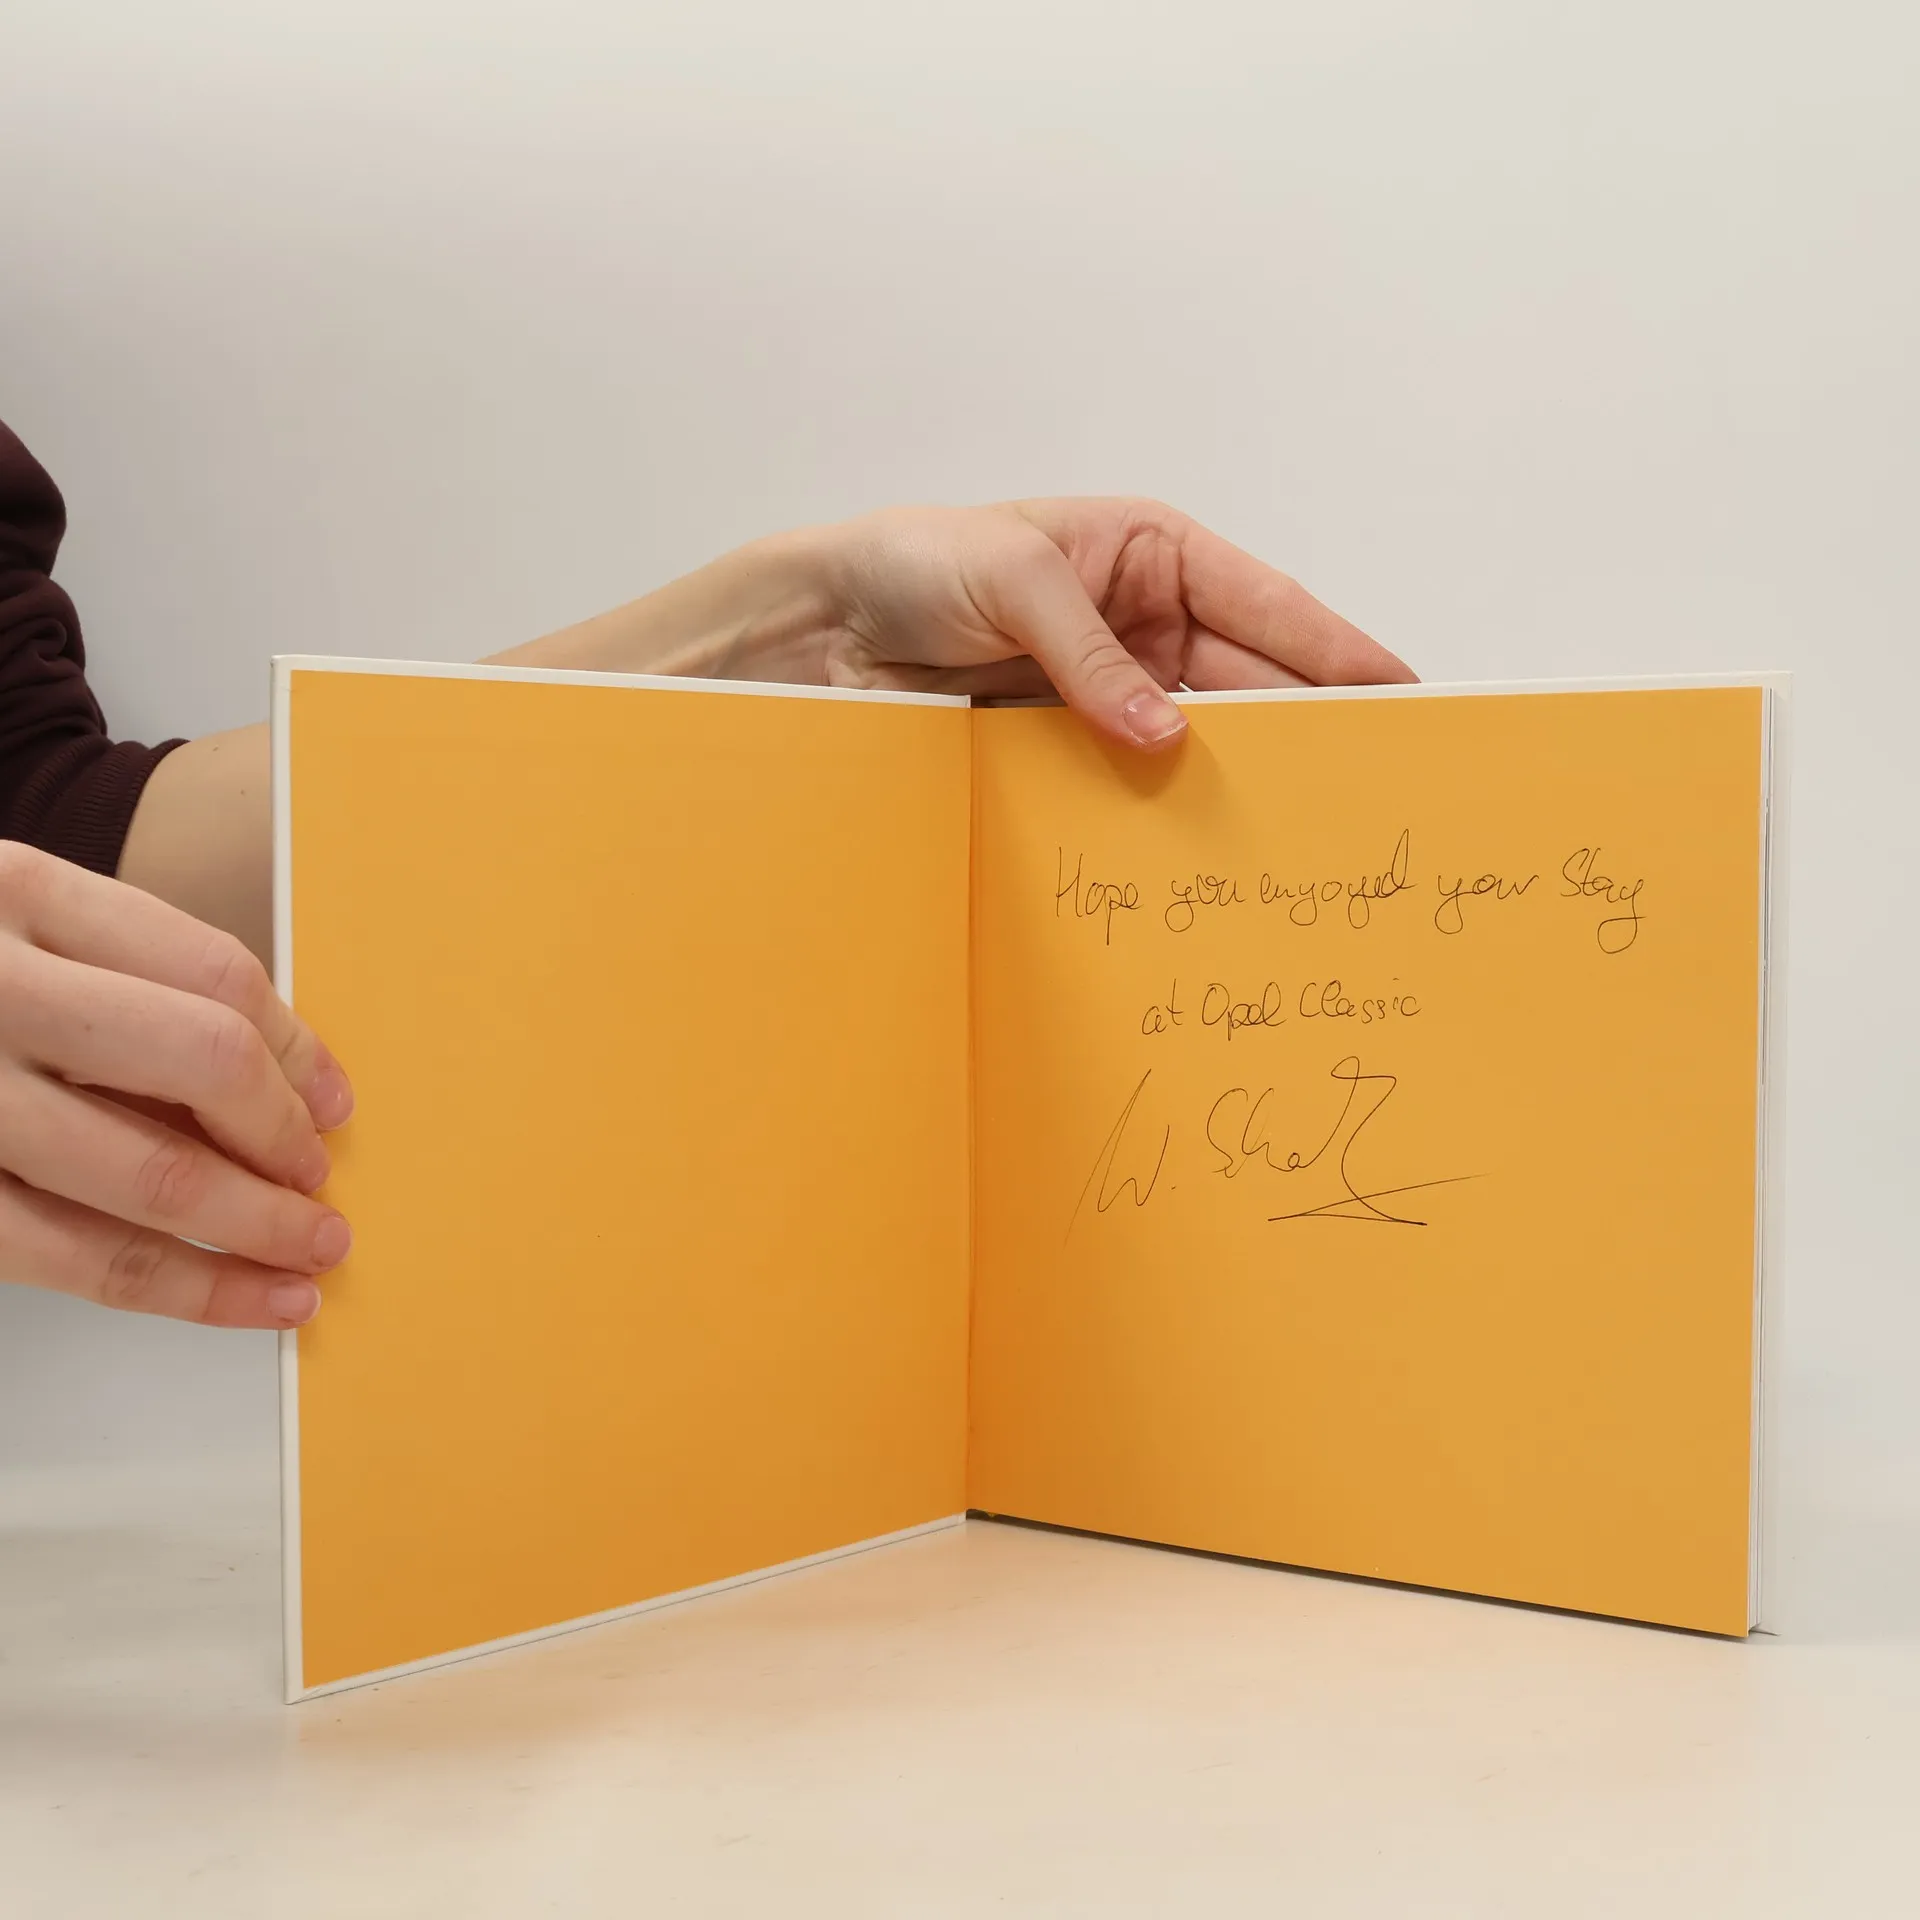 Hope you enjoyed your Stay
at Opel Classic
W.